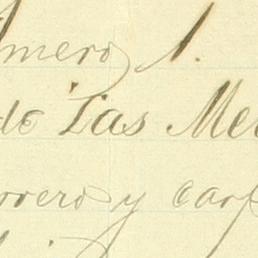 mero 1.
de Las Me
rrero y carp